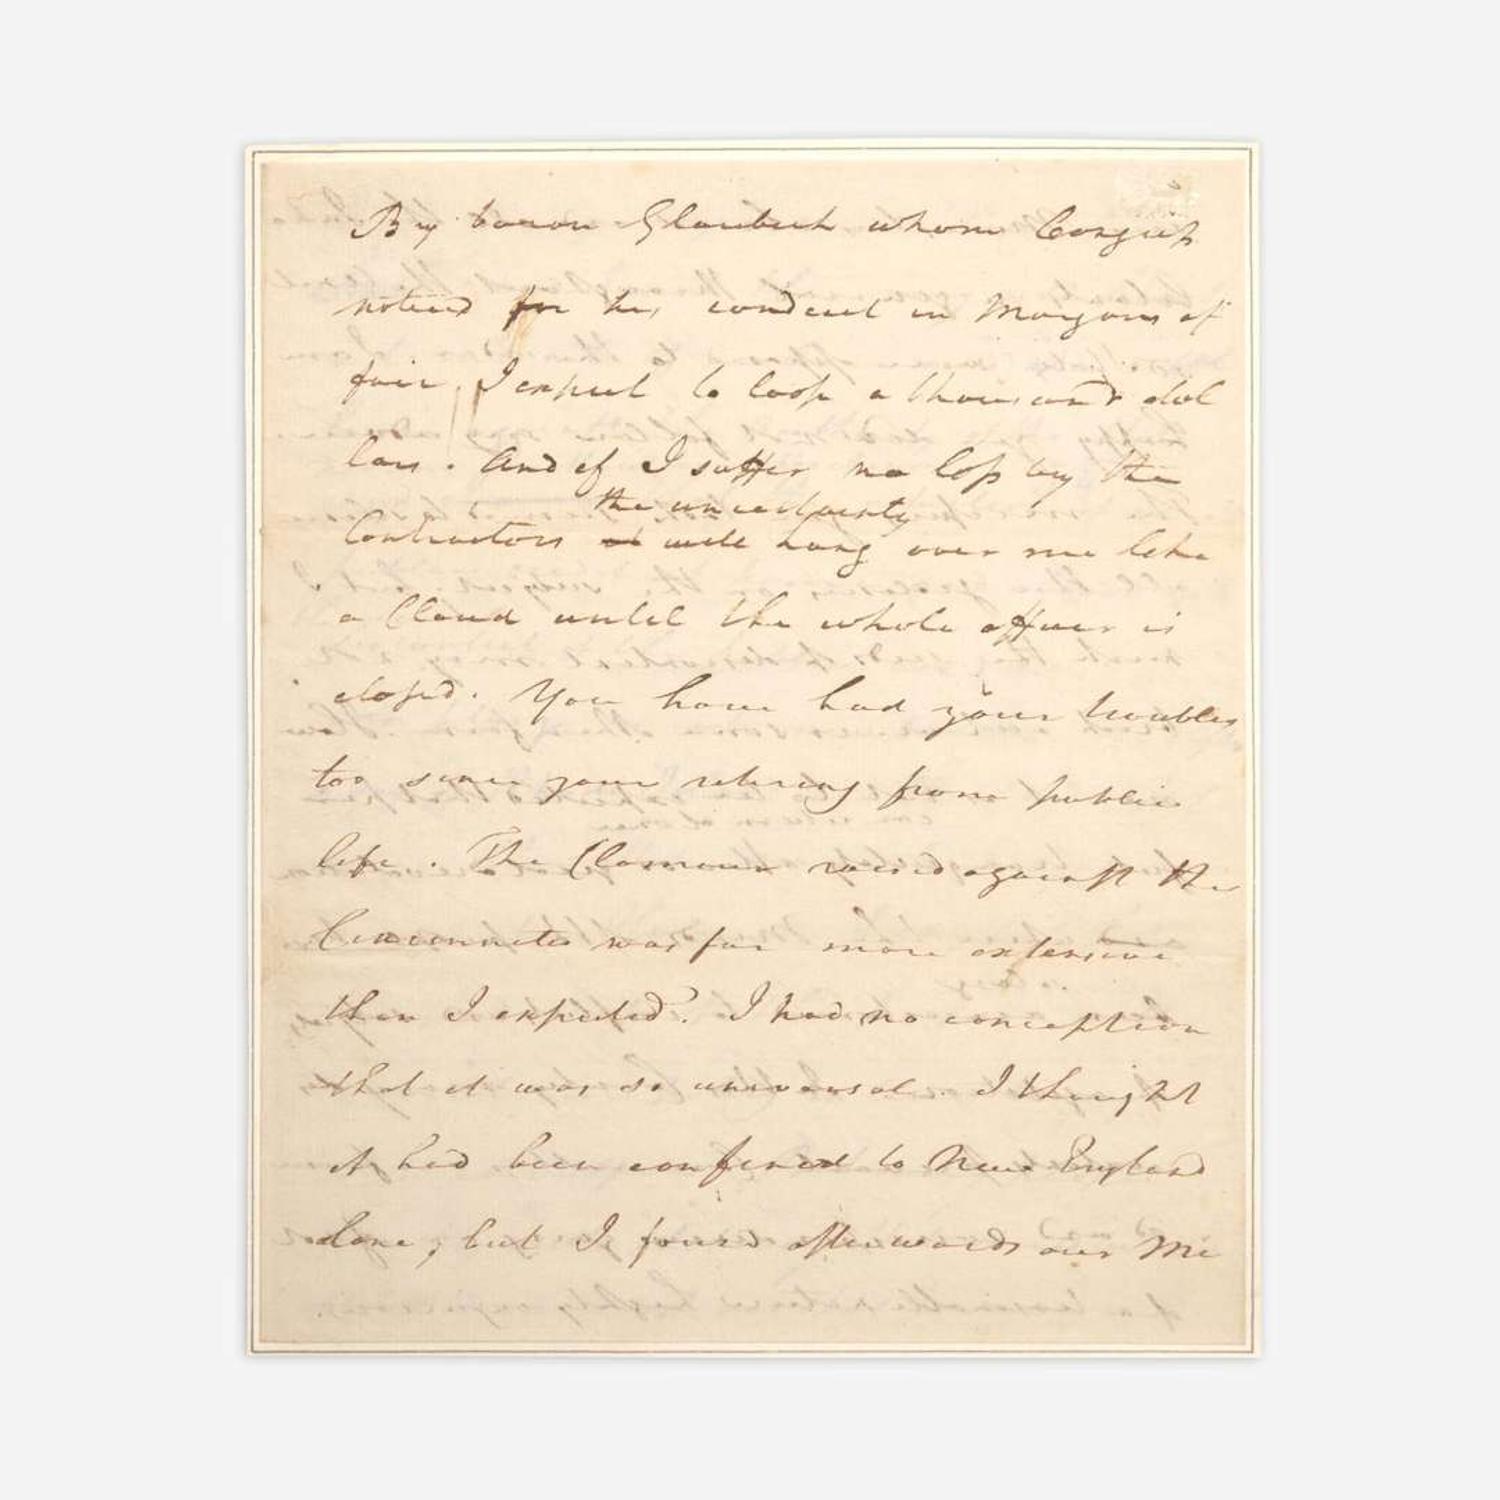 By baron Glaubeck whom Congress
noticed for his conduct in Morgans af
fair, I expect to loose a thousand dol
lars. And if I suffer no loss by the
the uncertainty
Contractors will hang over me like
a Cloud until the whole affair is
closed. You have had your troubles
too since your retiring from public
life. The Clamour raised against the
Cincinnati was far more extensive
than I expected. I had no conception
that it was so universal. I thought
it had been confined to New England
alone, but I found afterwards our Mi